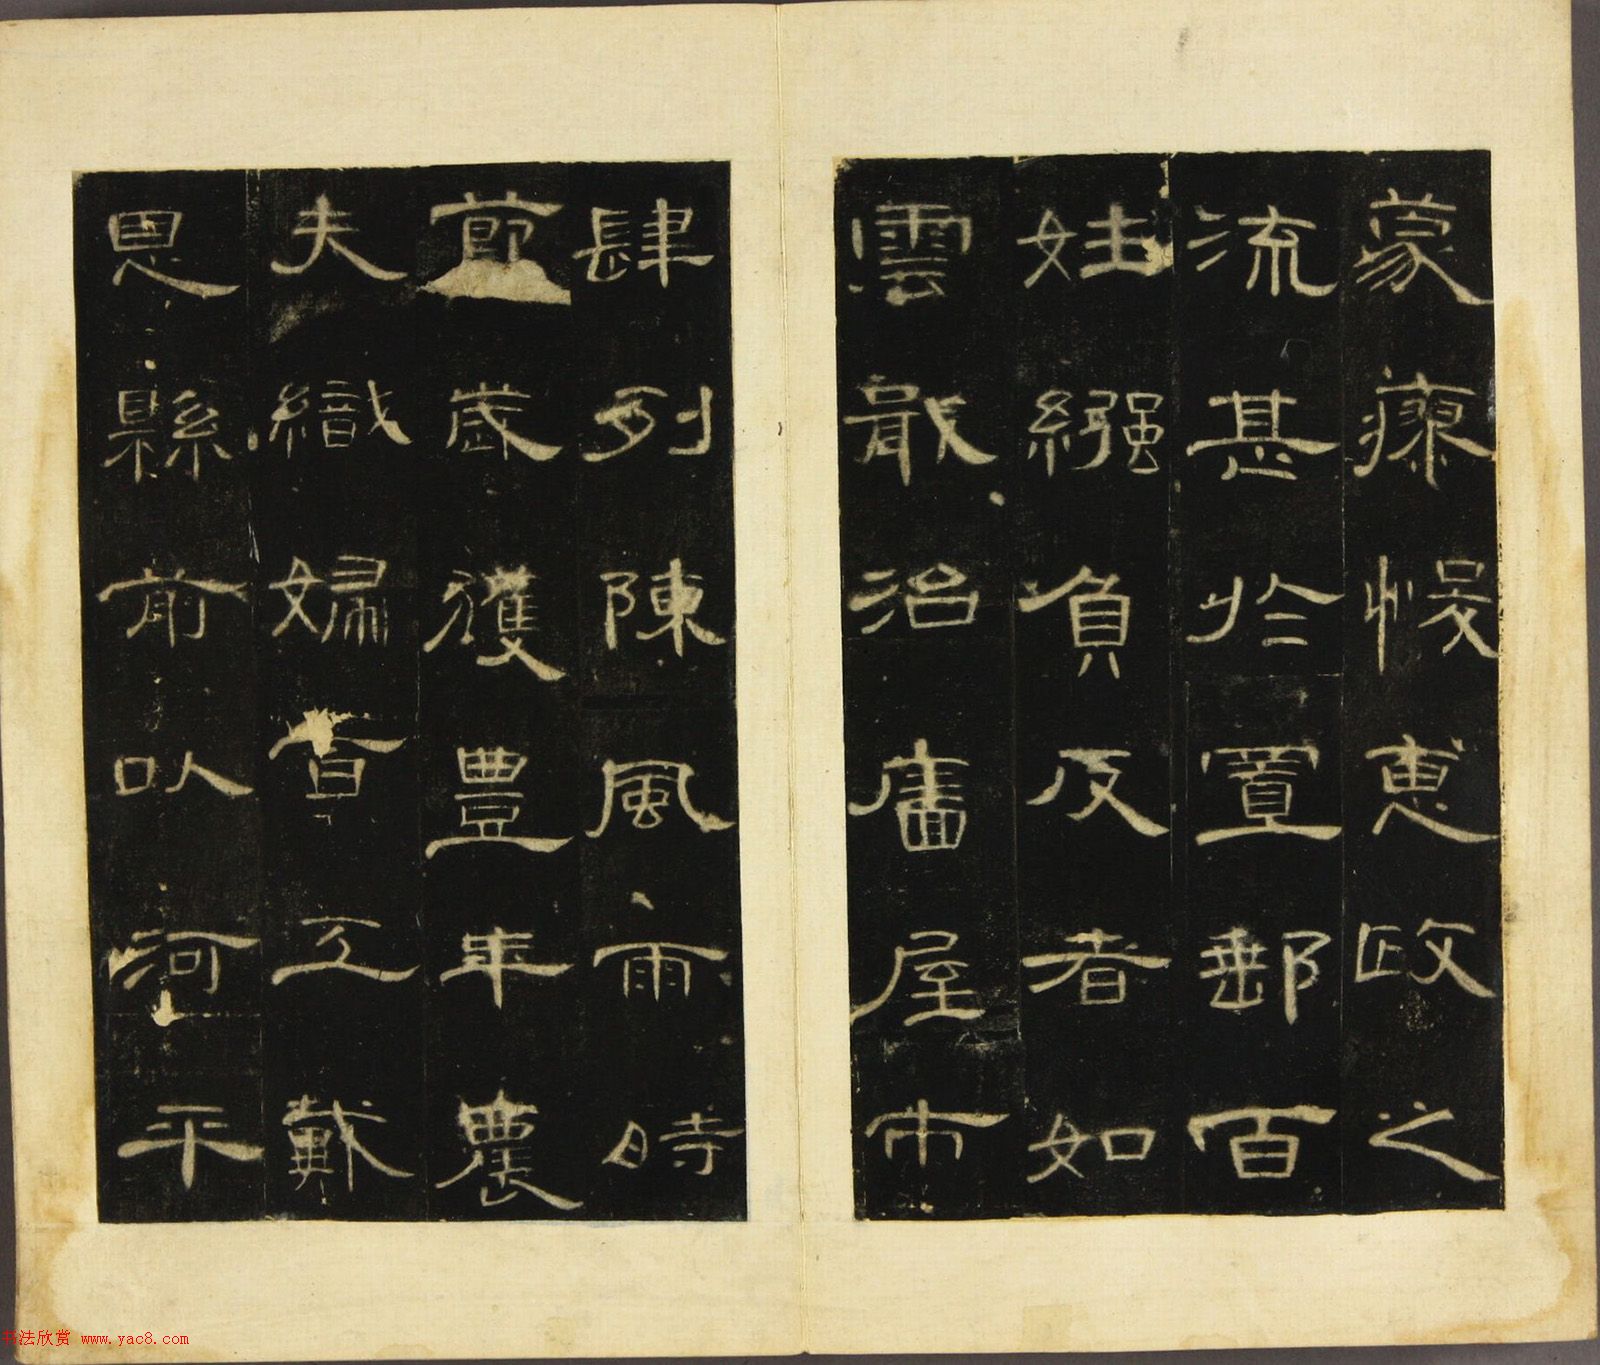 蒙瘳悞惠政之
流甚於置郵百
姓繈負反者如
雲戢治廧屋市
肆列陳風雨時
節歲獲豐年農
夫織婦百工戴
恩縣前以河平
书法欣赏 www.yac8.com